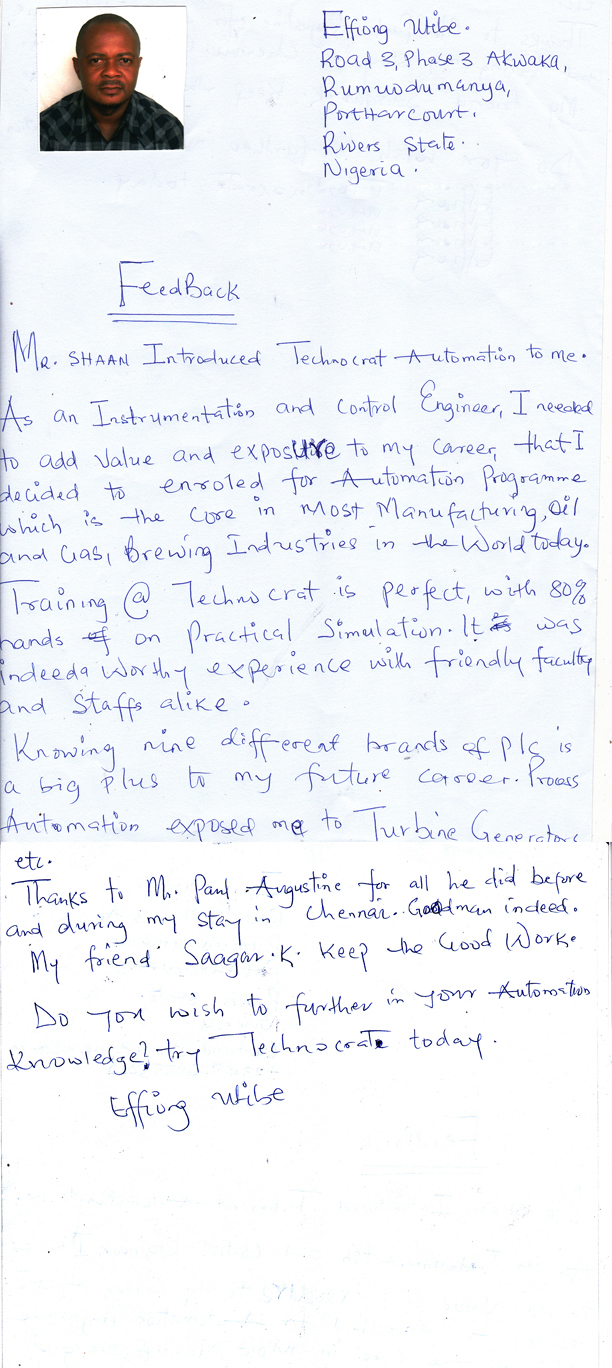 Effiong Utibe.
Road 3, Phase 3 Akwaka,
Rumuodumanya,
PortHarcourt.
Rivers State.
Nigeria.
FeedBack
Mr. SHAAN Introduced Technocrat Automation to me.
As an Instrumentation and control Engineer, I needed
to add Value and exposure to my career, that I
decided to enroled for Automation Programme
which is the core in Most Manufacturing, Oil
and Gas, Brewing Industries in the World today.
Training @ Technocrat is perfect, with 80%
hands on Practical Simulation. It was
indeed a Worthy experience with friendly faculty
and Staffs alike.
Knowing nine different brands of Plc is
a big plus to my future career. Process
Automation exposed me to Turbine Generators
etc.
Thanks to Mr. Paul Augustine for all he did before
and during my stay in Chennai. Goodman indeed.
My friend Saagar.K. Keep the Good Work.
Do you wish to further in your Automation
Knowledge? try Technocrat today.
Effiong Utibe